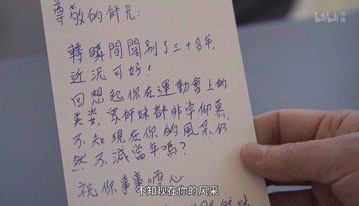 bilibili
尊敬的師兄：
轉瞬間闊別了三十多年，
近況可好！
回想起你在運動會上的
英姿，眾師妹都非常仰慕
不知現在你的風采仍
然不減當年嗎？
祝你事事順心
不知现在你的风采
師妹